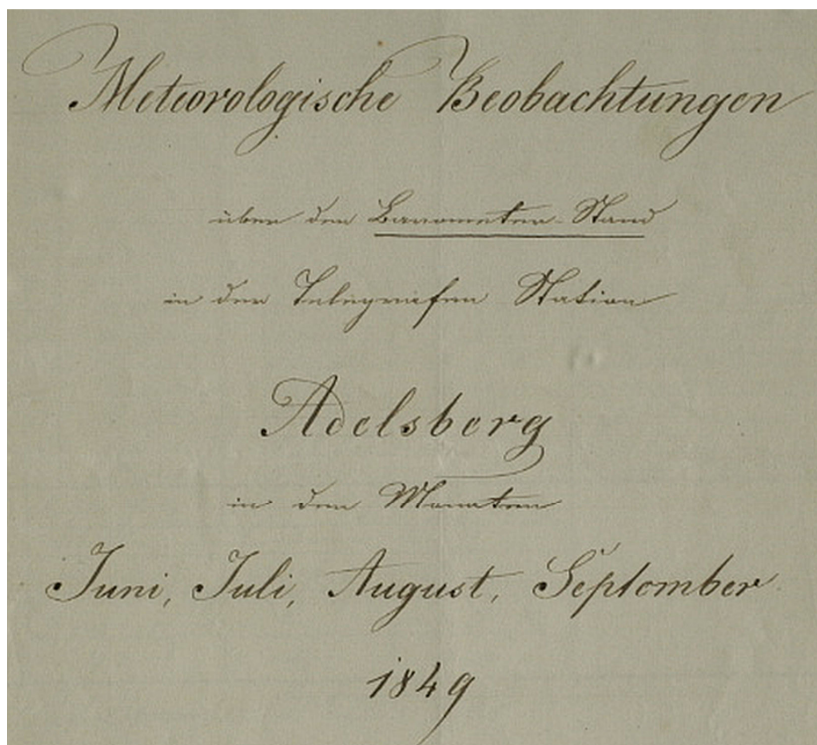 Meteorologische Beobachtungen
über den Barometer-Stand
in der Telegrafen Station
Adelsberg
in den Monaten
Juni, Juli, August, September
1849